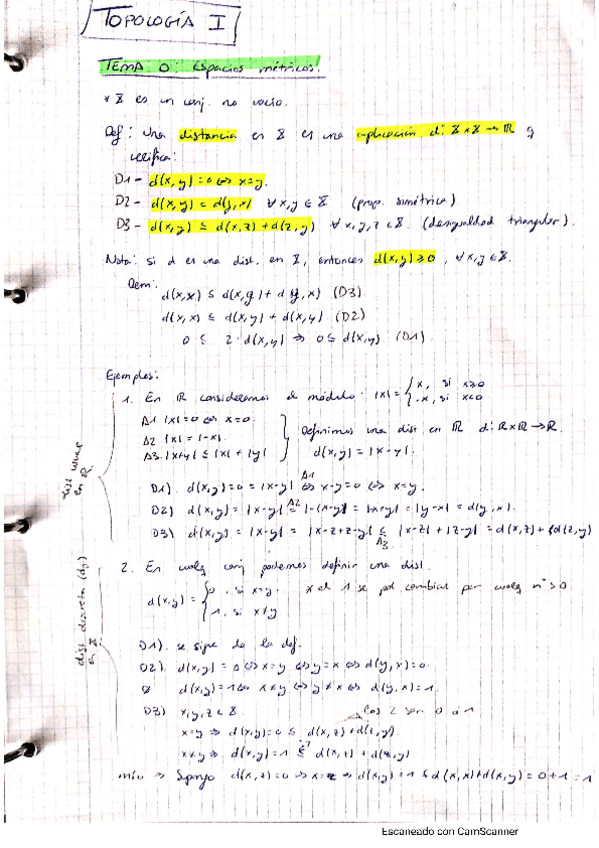 TOPOLOGÍA I
TEMA 0: Espacios métricos.
* X es un conj. no vacío.
Def: Una distancia en X es una aplicación d: X x X → ℝ q
verifica:
D1 - d(x,y) = 0 ⇔ x=y.
D2 - d(x,y) = d(y,x) ∀ x,y ∈ X (prop. simétrica)
D3 - d(x,y) ≤ d(x,z) + d(z,y) ∀ x,y,z ∈ X. (desigualdad triangular).
Nota: si d es una dist. en X, entonces d(x,y) ≥ 0, ∀ x,y ∈ X.
Dem:
d(x,x) ≤ d(x,y) + d(y,x) (D3).
d(x,x) ≤ d(x,y) + d(x,y) (D2)
0 ≤ 2·d(x,y) ⇒ 0 ≤ d(x,y) (D1).
Ejemplos:
dist usual en ℝ.
1. En ℝ consideramos el módulo: |x| = { x, si x≥0
-x, si x<0
A1 |x| = 0 ⇔ x=0.
A2 |x| = |-x|.
A3. |x+y| ≤ |x| + |y|
Definimos una dist en ℝ d: ℝxℝ → ℝ.
d(x,y) = |x-y|.
D1). d(x,y) = 0 = |x-y| ⇔ A1 x-y=0 ⇔ x=y.
D2) d(x,y) = |x-y| = A2 |-(x-y)| = |-x+y| = |y-x| = d(y,x).
D3) d(x,y) = |x-y| = |x-z+z-y| ≤ A3 |x-z| + |z-y| = d(x,z) + d(z,y)
dist discreta en X.
2. En cualq conj podemos definir una dist.
d(x,y) = { 0, si x=y.
1, si x≠y
* el 1 se pd cambiar por cualq nº > 0
D1). se sigue de la def.
D2). d(x,y) = 0 ⇔ x=y ⇔ y=x ⇔ d(y,x)=0.
d(x,y) = 1 ⇔ x≠y ⇔ y≠x ⇔ d(y,x)=1.
D3) x,y,z ∈ X.
los 2 son 0 ó 1
x=y ⇒ d(x,y)=0 ≤ d(x,z) + d(z,y)
x≠y ⇒ d(x,y) = 1 ≤? d(x,z) + d(z,y)
mío → Supongo d(x,z)=0 ⇒ x=z ⇒ d(x,y) = 1 ≤ d(x,x)+d(x,y) = 0+1 = 1
Escaneado con CamScanner